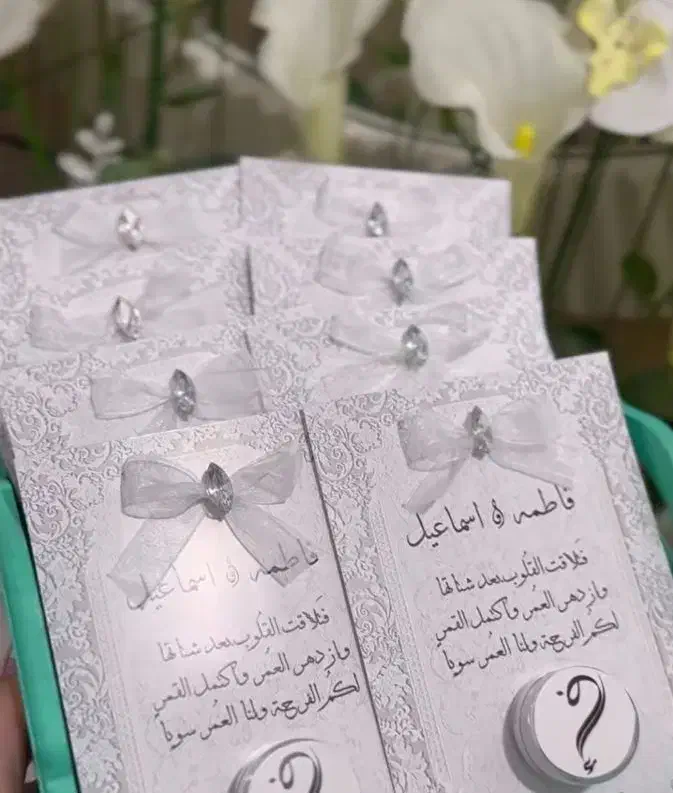 فاطمه & اسماعيل
فتلاقت القلوب بعد شتاتها
وازدهر العمر وأكتمل القمر
لكم الفرحة ولنا العمر سوياً
فاطمه & اسماعيل
فتلاقت القلوب بعد شتاتها
وازدهر العمر وأكتمل القمر
لكم الفرحة ولنا العمر سوياً